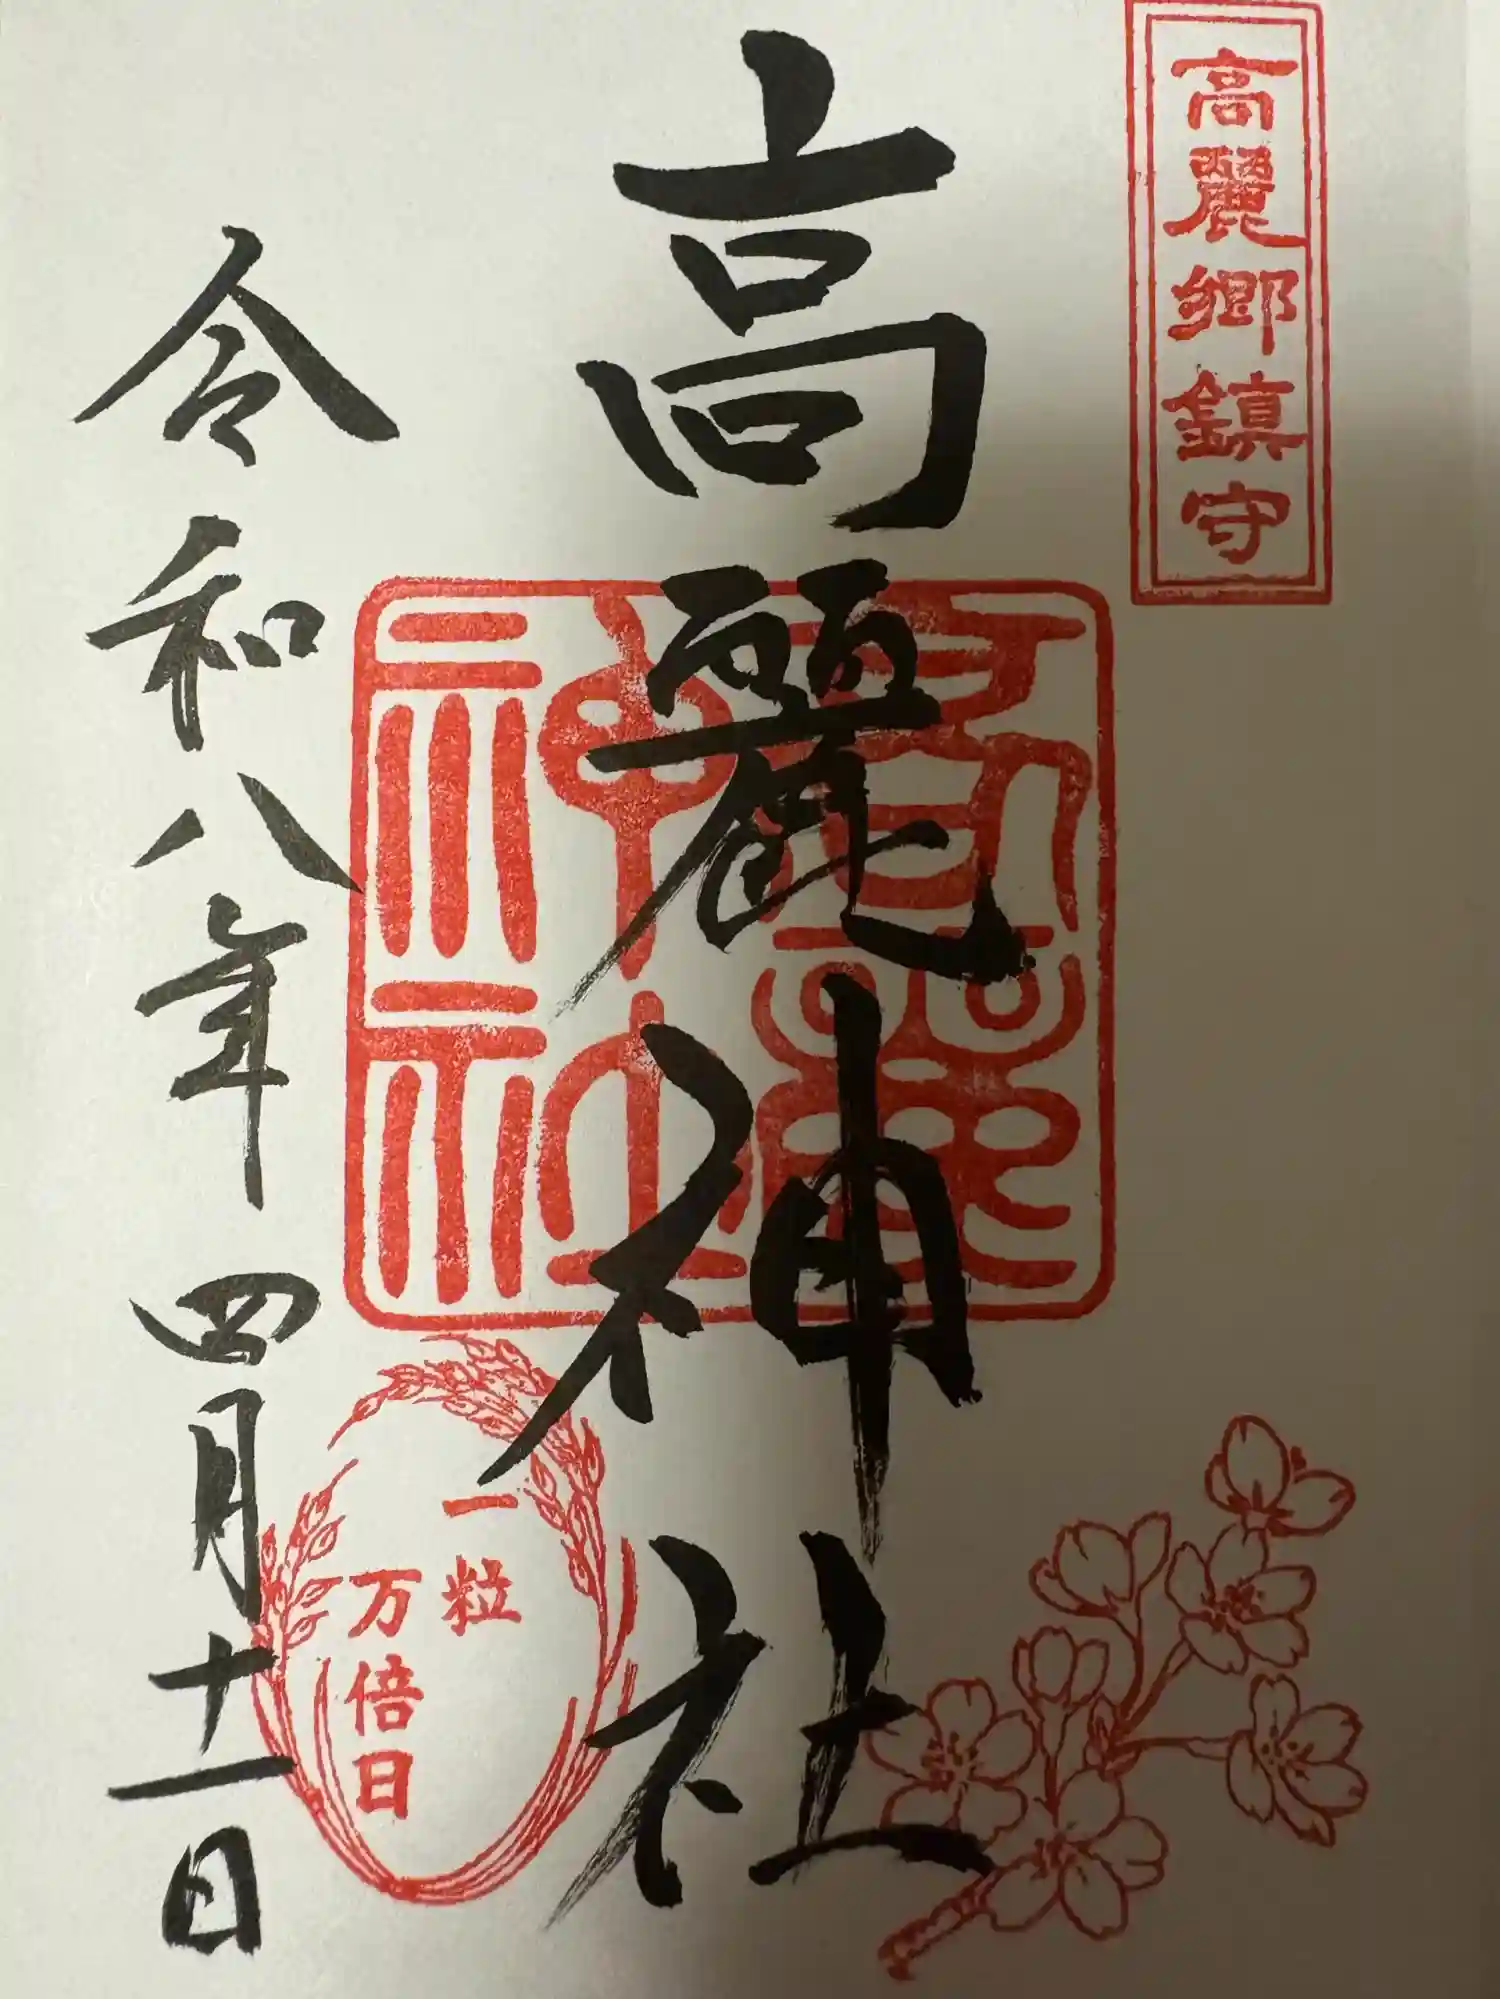 高麗郷鎮守
高麗神社
高麗神社
一粒
万倍日
令和八年四月十一日